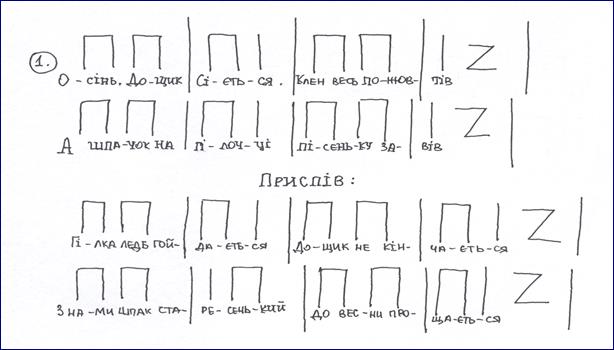 1. О - сінь. До-щик Сі - єть - ся. Клен весь по-жов- тів
А шпа-чок на гі - лоч - ці пі - сень - ку за- вів
Приспів:
Гі - лка ледь гой- да - єть - ся До - щик не кін- ча - єть - ся
З на - ми шпак ста- ре - сень - кий до вес - ни про- ща - єть - ся